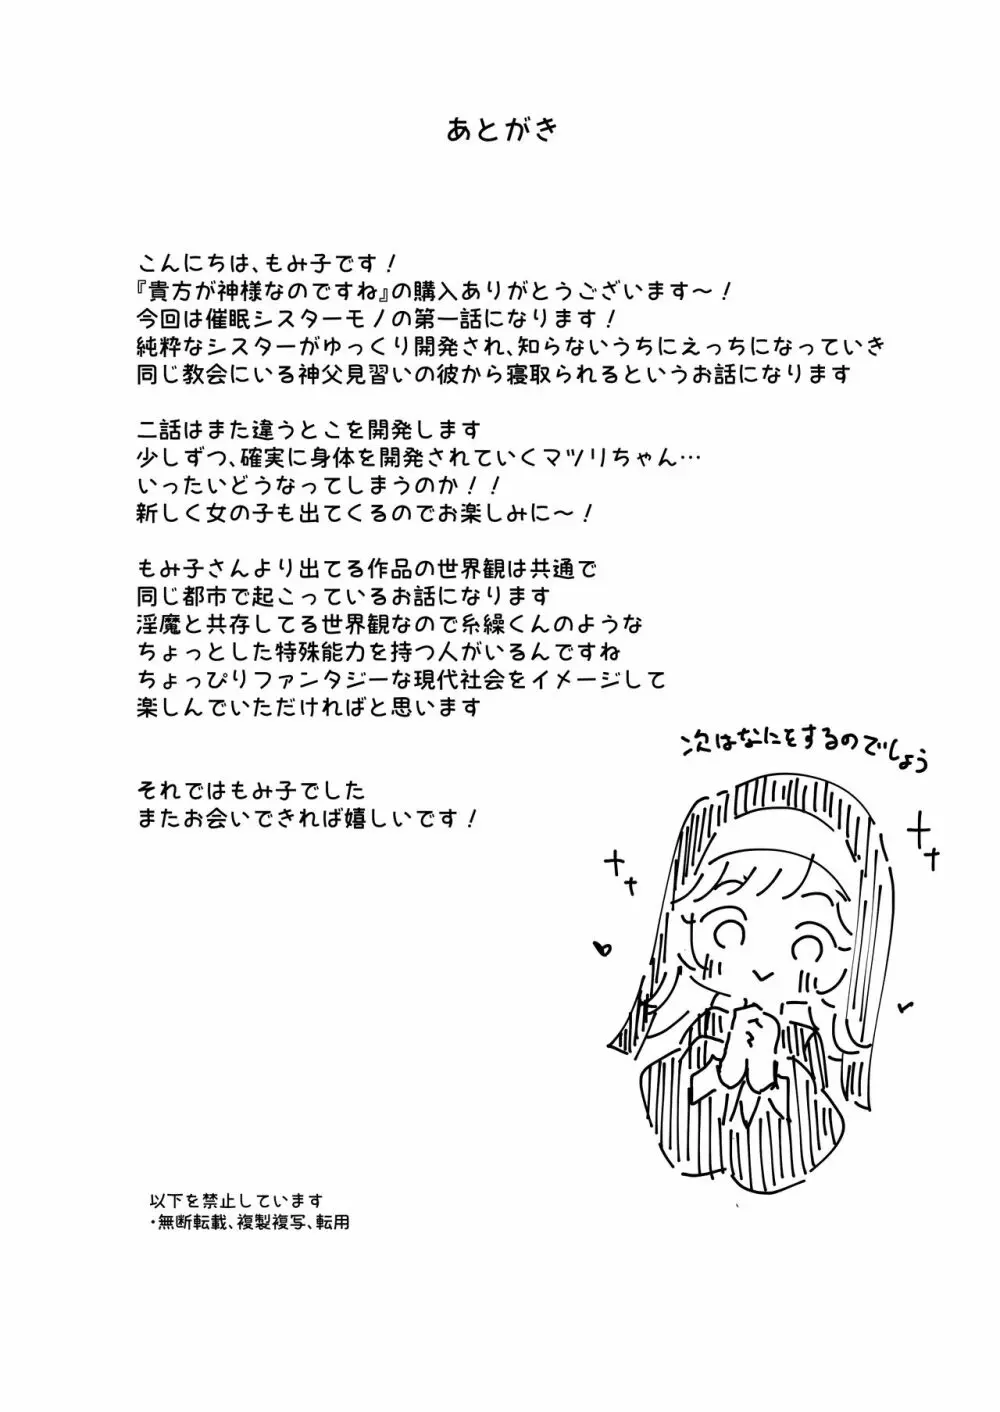 あとがき
こんにちは、もみ子です！
『貴方が神様なのですね』の購入ありがとうございます～！
今回は催眠シスターモノの第一話になります！
純粋なシスターがゆっくり開発され、知らないうちにえっちになっていき
同じ教会にいる神父見習いの彼から寝取られるというお話になります
二話はまた違うとこを開発します
少しずつ、確実に身体を開発されていくマツリちゃん…
いったいどうなってしまうのか！！
新しく女の子も出てくるのでお楽しみに～！
もみ子さんより出てる作品の世界観は共通で
同じ都市で起こっているお話になります
淫魔と共存してる世界観なので糸繰くんのような
ちょっとした特殊能力を持つ人がいるんですね
ちょっぴりファンタジーな現代社会をイメージして
楽しんでいただければと思います
次はなにをするのでしょう
それではもみ子でした
またお会いできれば嬉しいです！
以下を禁止しています
・無断転載、複製複写、転用